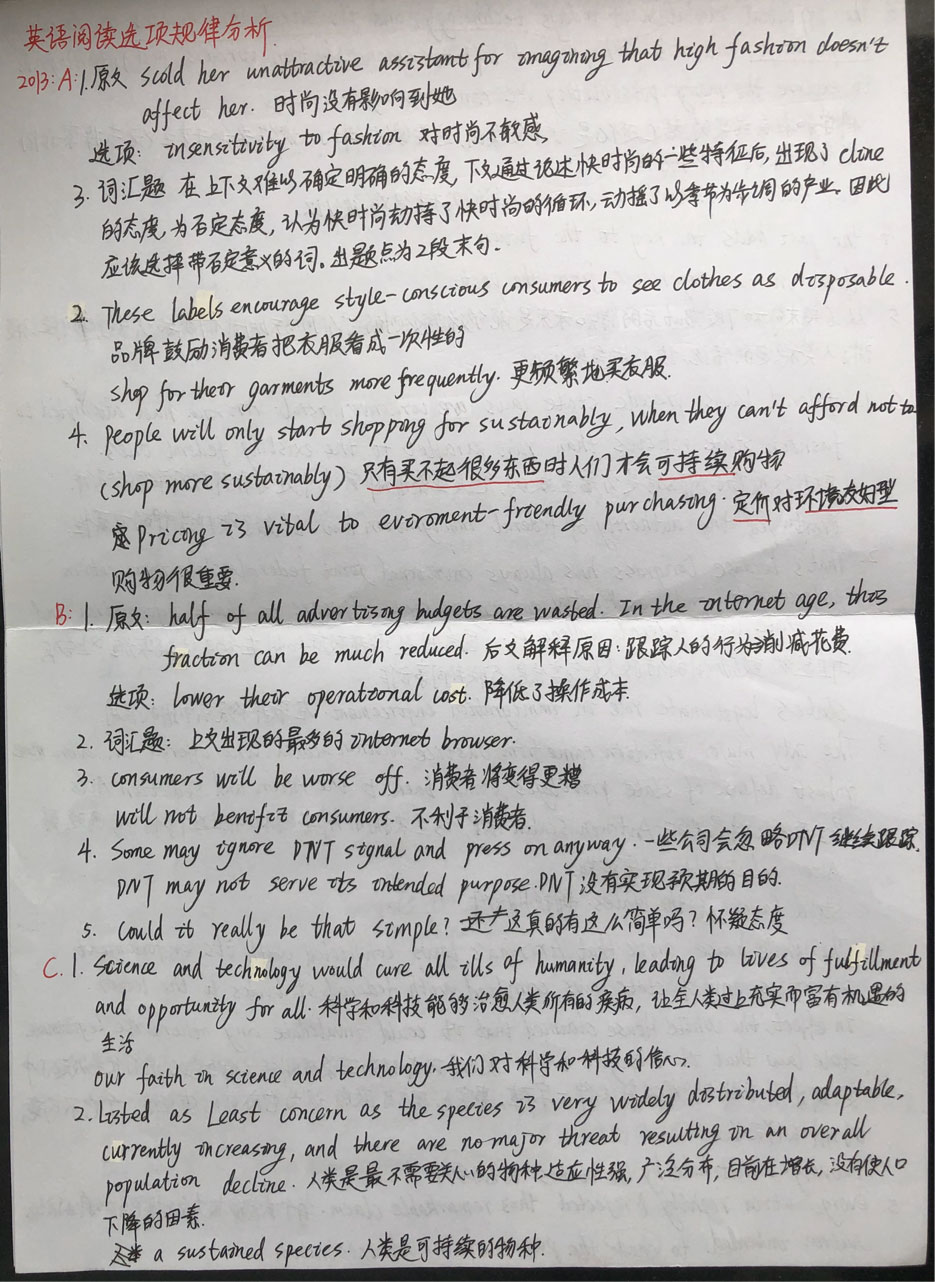 英语阅读选项规律分析.
2013:A:1.原文 scold her unattractive assistant for imagining that high fashion doesn't
affect her. 时尚没有影响到她
选项: insensitivity to fashion 对时尚不敏感
3. 词汇题 在上下文难以确定明确的态度,下文通过论述快时尚的一些特征后,出现了 cline
的态度,为否定态度,认为快时尚劫持了快时尚的循环,动摇了以季节为步调的产业。因此
应该选择带否定意义的词。出题点为2段末句。
2. These labels encourage style-conscious consumers to see clothes as disposable.
品牌鼓励消费者把衣服看成一次性的
shop for their garments more frequently. 更频繁地买衣服.
4. people will only start shopping for sustainably, when they can't afford not to
(shop more sustainably) 只有买不起很多东西时人们才会可持续购物
Pricing is vital to eviroment-friendly purchasing. 定价对环境友好型
购物很重要.
B: 1. 原文: half of all advertising budgets are wasted. In the internet age, this
fraction can be much reduced. 后文解释原因:跟踪人的行为消减花费.
选项: lower their operational cost. 降低了操作成本.
2. 词汇题: 上文出现的最多的 internet browser.
3. consumers will be worse off. 消费者将变得更糟
will not benifit consumers. 不利于消费者.
4. Some may ignore DNT signal and press on anyway. 一些公司会忽略DNT继续跟踪.
DNT may not serve its intended purpose.DNT没有实现预期的目的.
5. Could it really be that simple? 这真的有这么简单吗? 怀疑态度
C. 1. Science and technology would cure all ills of humanity, leading to lives of fulfillment
and opportunity for all. 科学和科技能够治愈人类所有的疾病, 让全人类过上充实而富有机遇的
生活
Our faith in science and technology. 我们对科学和科技的信心.
2. Listed as Least concern as the species is very widely distributed, adaptable,
currently increasing, and there are no major threat resulting in an overall
population decline. 人类是最不需要关心的物种,适应性强,广泛分布,目前在增长,没有使人口
下降的因素.
a sustained species. 人类是可持续的物种.